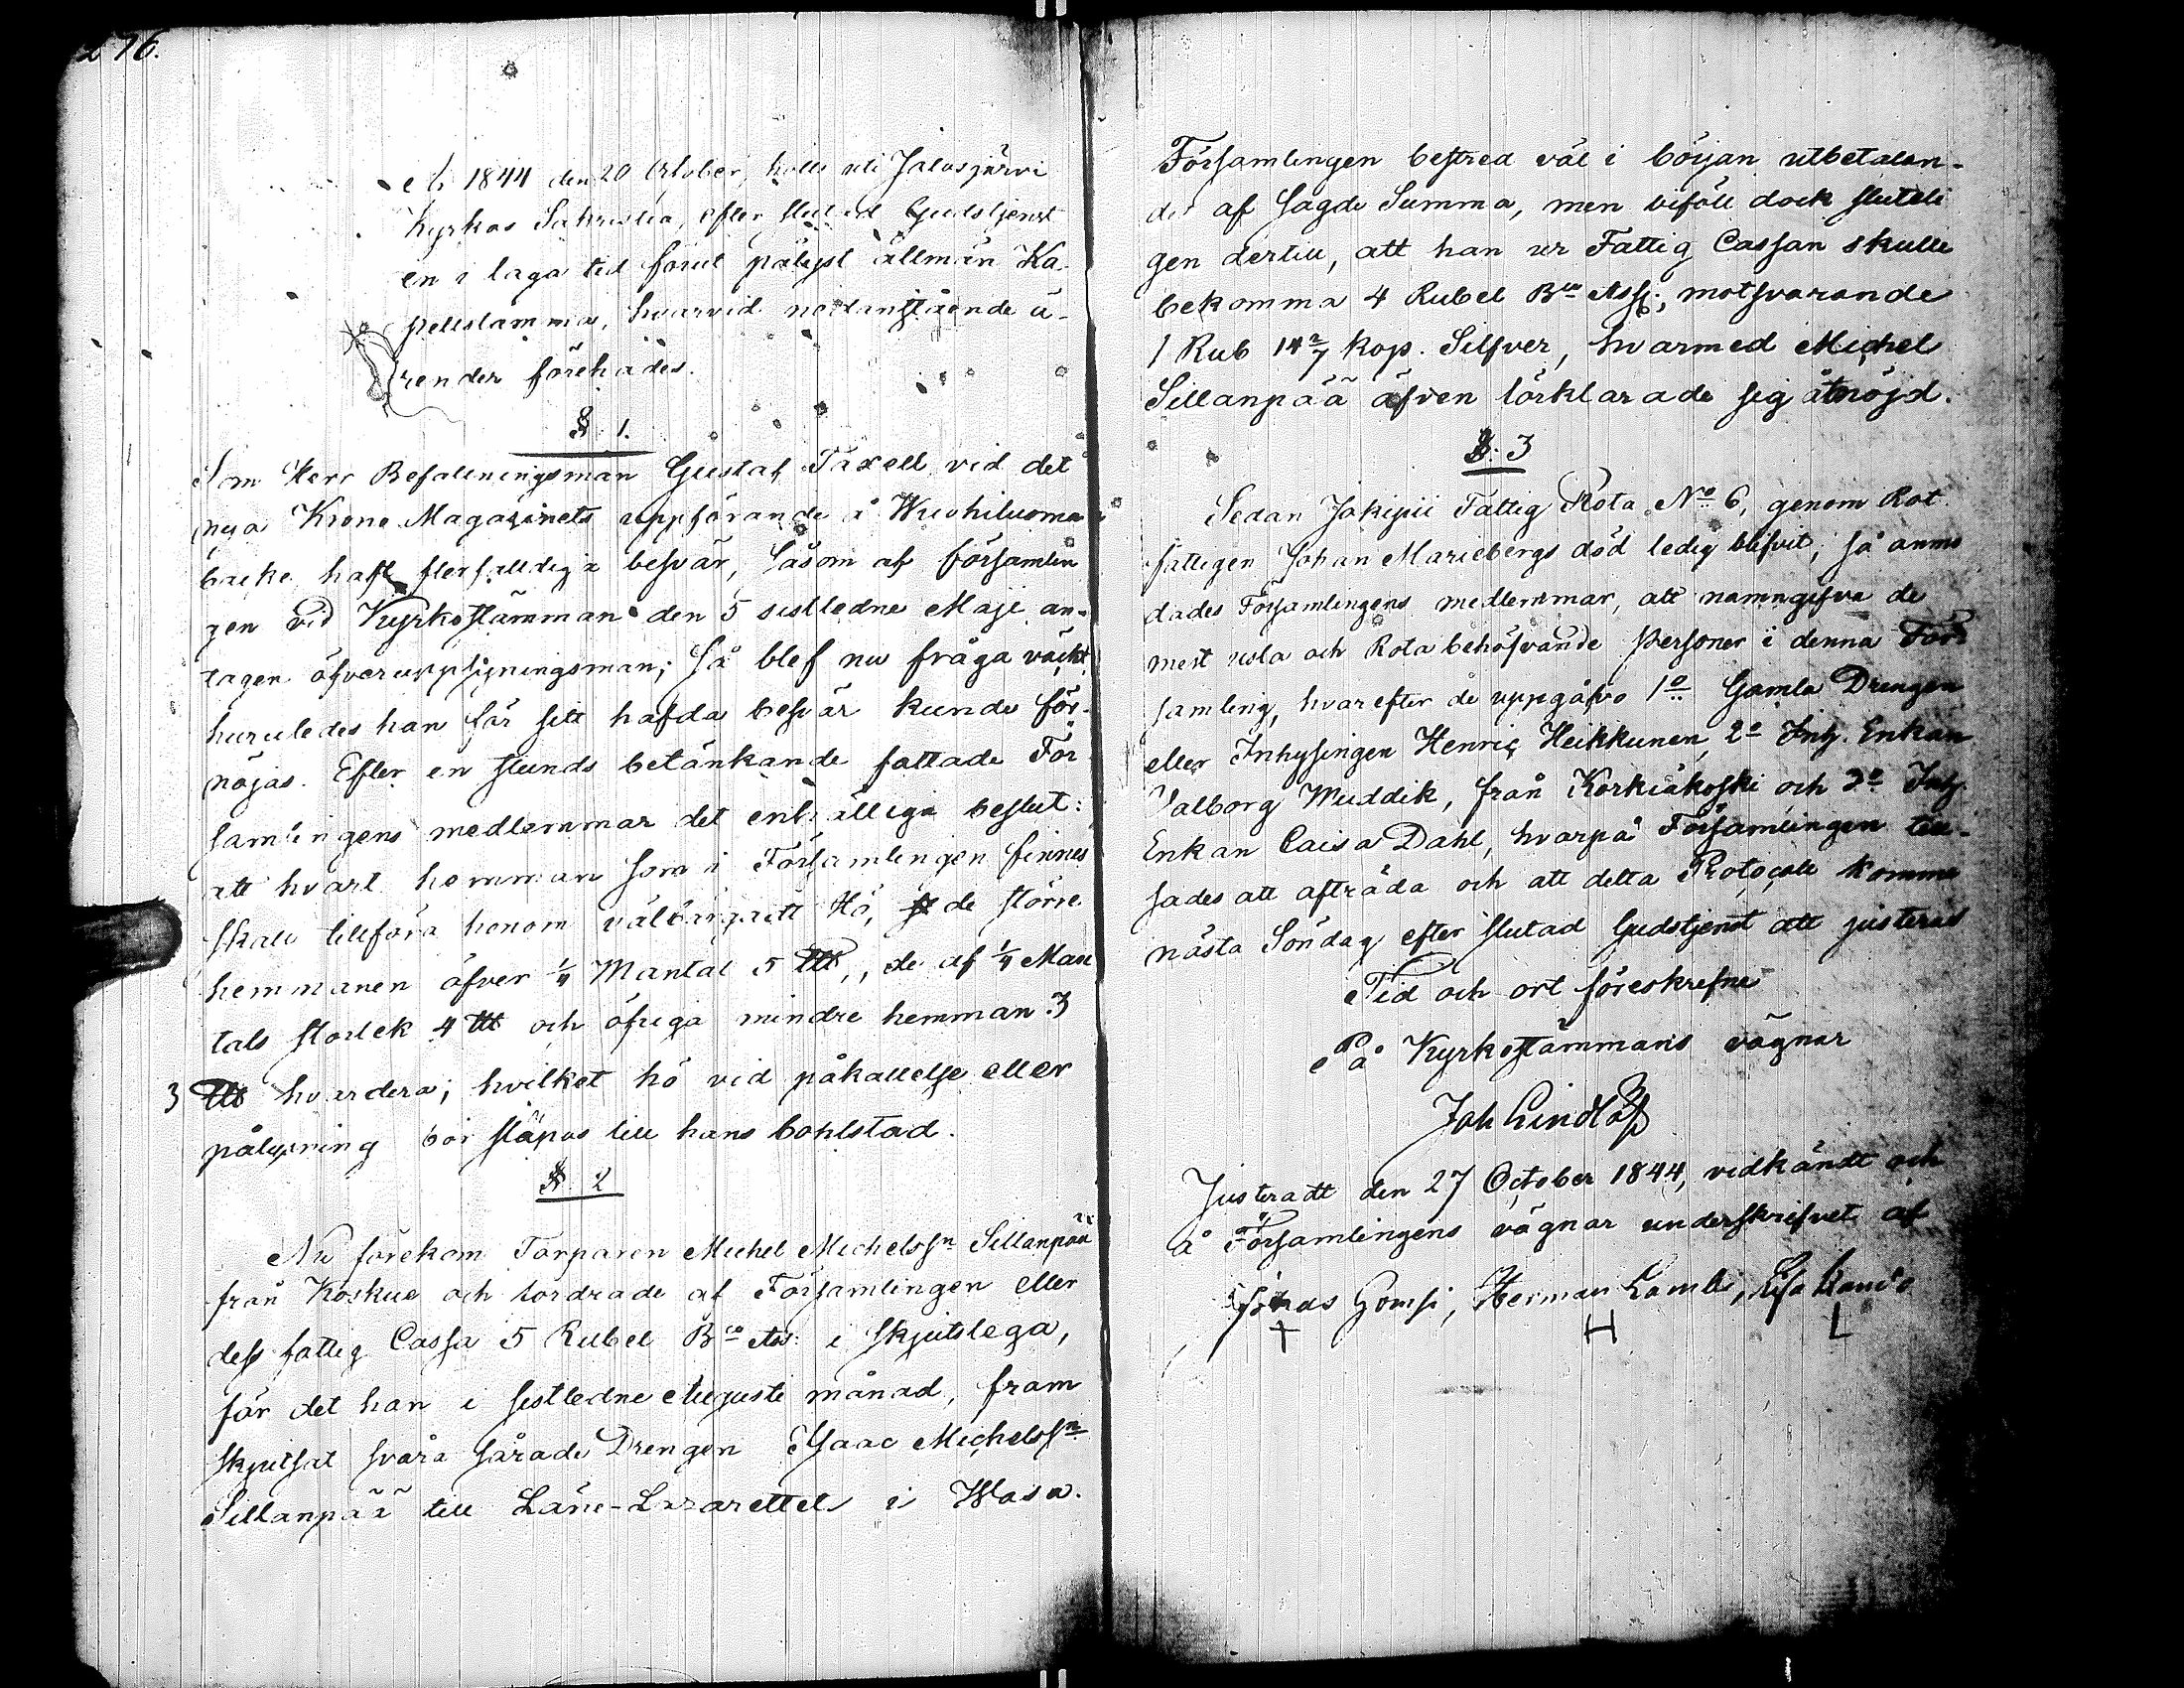 276.
År 1844 den 20 October, hölls uti Jalasjärvi
Kyrkas Sakristia, efter slutad Gudstjenst
en i laga tid förut pålyst allmän Ka-
pellstämma, hvarvid nedanstående ä-
render förehades.
§ 1.
Som Herr Befallningsman Gustaf Taxell vid det
nya Krono Magazinets uppförande å Wuohiluoma
backe haft flerfalldiga besvär, såsom af församlin
gen vid Kyrkostämman den 5 sistledne Maji an-
tagen öfveruppsyningsman; så blef nu fråga väckt
huruledes han för sitt hafda besvär kunde för-
nöjas. Efter en stunds betänkande fattade För
samlingens medlemmar det enhälliga beslut:
att hvart hemman som i Församlingen finnes
skall tillföra honom välbärgadt Hö, de större
hemmanen öfver 1/4 Mantal 5 LU, de af 1/4 Man
tals storlek 4 LU och öfriga mindre hemman 3
3 LU hvardera; hvilket hö vid påkallelse eller
pålysning bör släpas till hans bohlstad.
§ 2
Nu förekom Torparen Michel Michelssn Sillanpää
från Koskue och fordrade af Församlingen eller
dess fattig Cassa 5 Rubel Bco Ass: i skjutslega,
för det han i sistledne Augusti månad, fram
skjutsat svåra sårade Drengen Isaac Michelssn
Sillanpää till Läne-Lazarettet i Wasa.
Församlingen bestred väl i början utbetalan-
det af sagde Summa, men biföll dock slutli
gen dertill, att han ur Fattig Cassan skulle
bekomma 4 Rubel Bco Ass:, motsvarande
1 Rub 14 2/7 kop. Silfver, hvarmed Michel
Sillanpää äfven förklarade sig åtnöjd.
§: 3
Sedan Jokipii Fattig Rota No 6, genom Rot
fattigen Johan Mariebergs död ledig blifvit, så anmo
dades Församlingens medlemmar, att namngifva de
mest usla och Rota behöfvande personer i denna För
samling, hvarefter de uppgåfvo 1o Gamla Drengen
eller Inhysingen Henric Heikkunen, 2o Inh. Enkan
Valborg Wuddik, från Korkiakoski och 3o Inh
Enkan Caisa Dahl, hvarpå Församlingen till-
sades att afträda och att detta Protocoll komme
nästa Söndag efter slutad Gudstjenst att justeras
Tid och ort föreskrefne
På Kyrkostämmans vägnar
Joh Lindlöf
Justeradt den 27 October 1844, vidkändt och
å Församlingens vägnar underskrifvet af
Jonas Gomsi, Herman Lambi,
+ H L